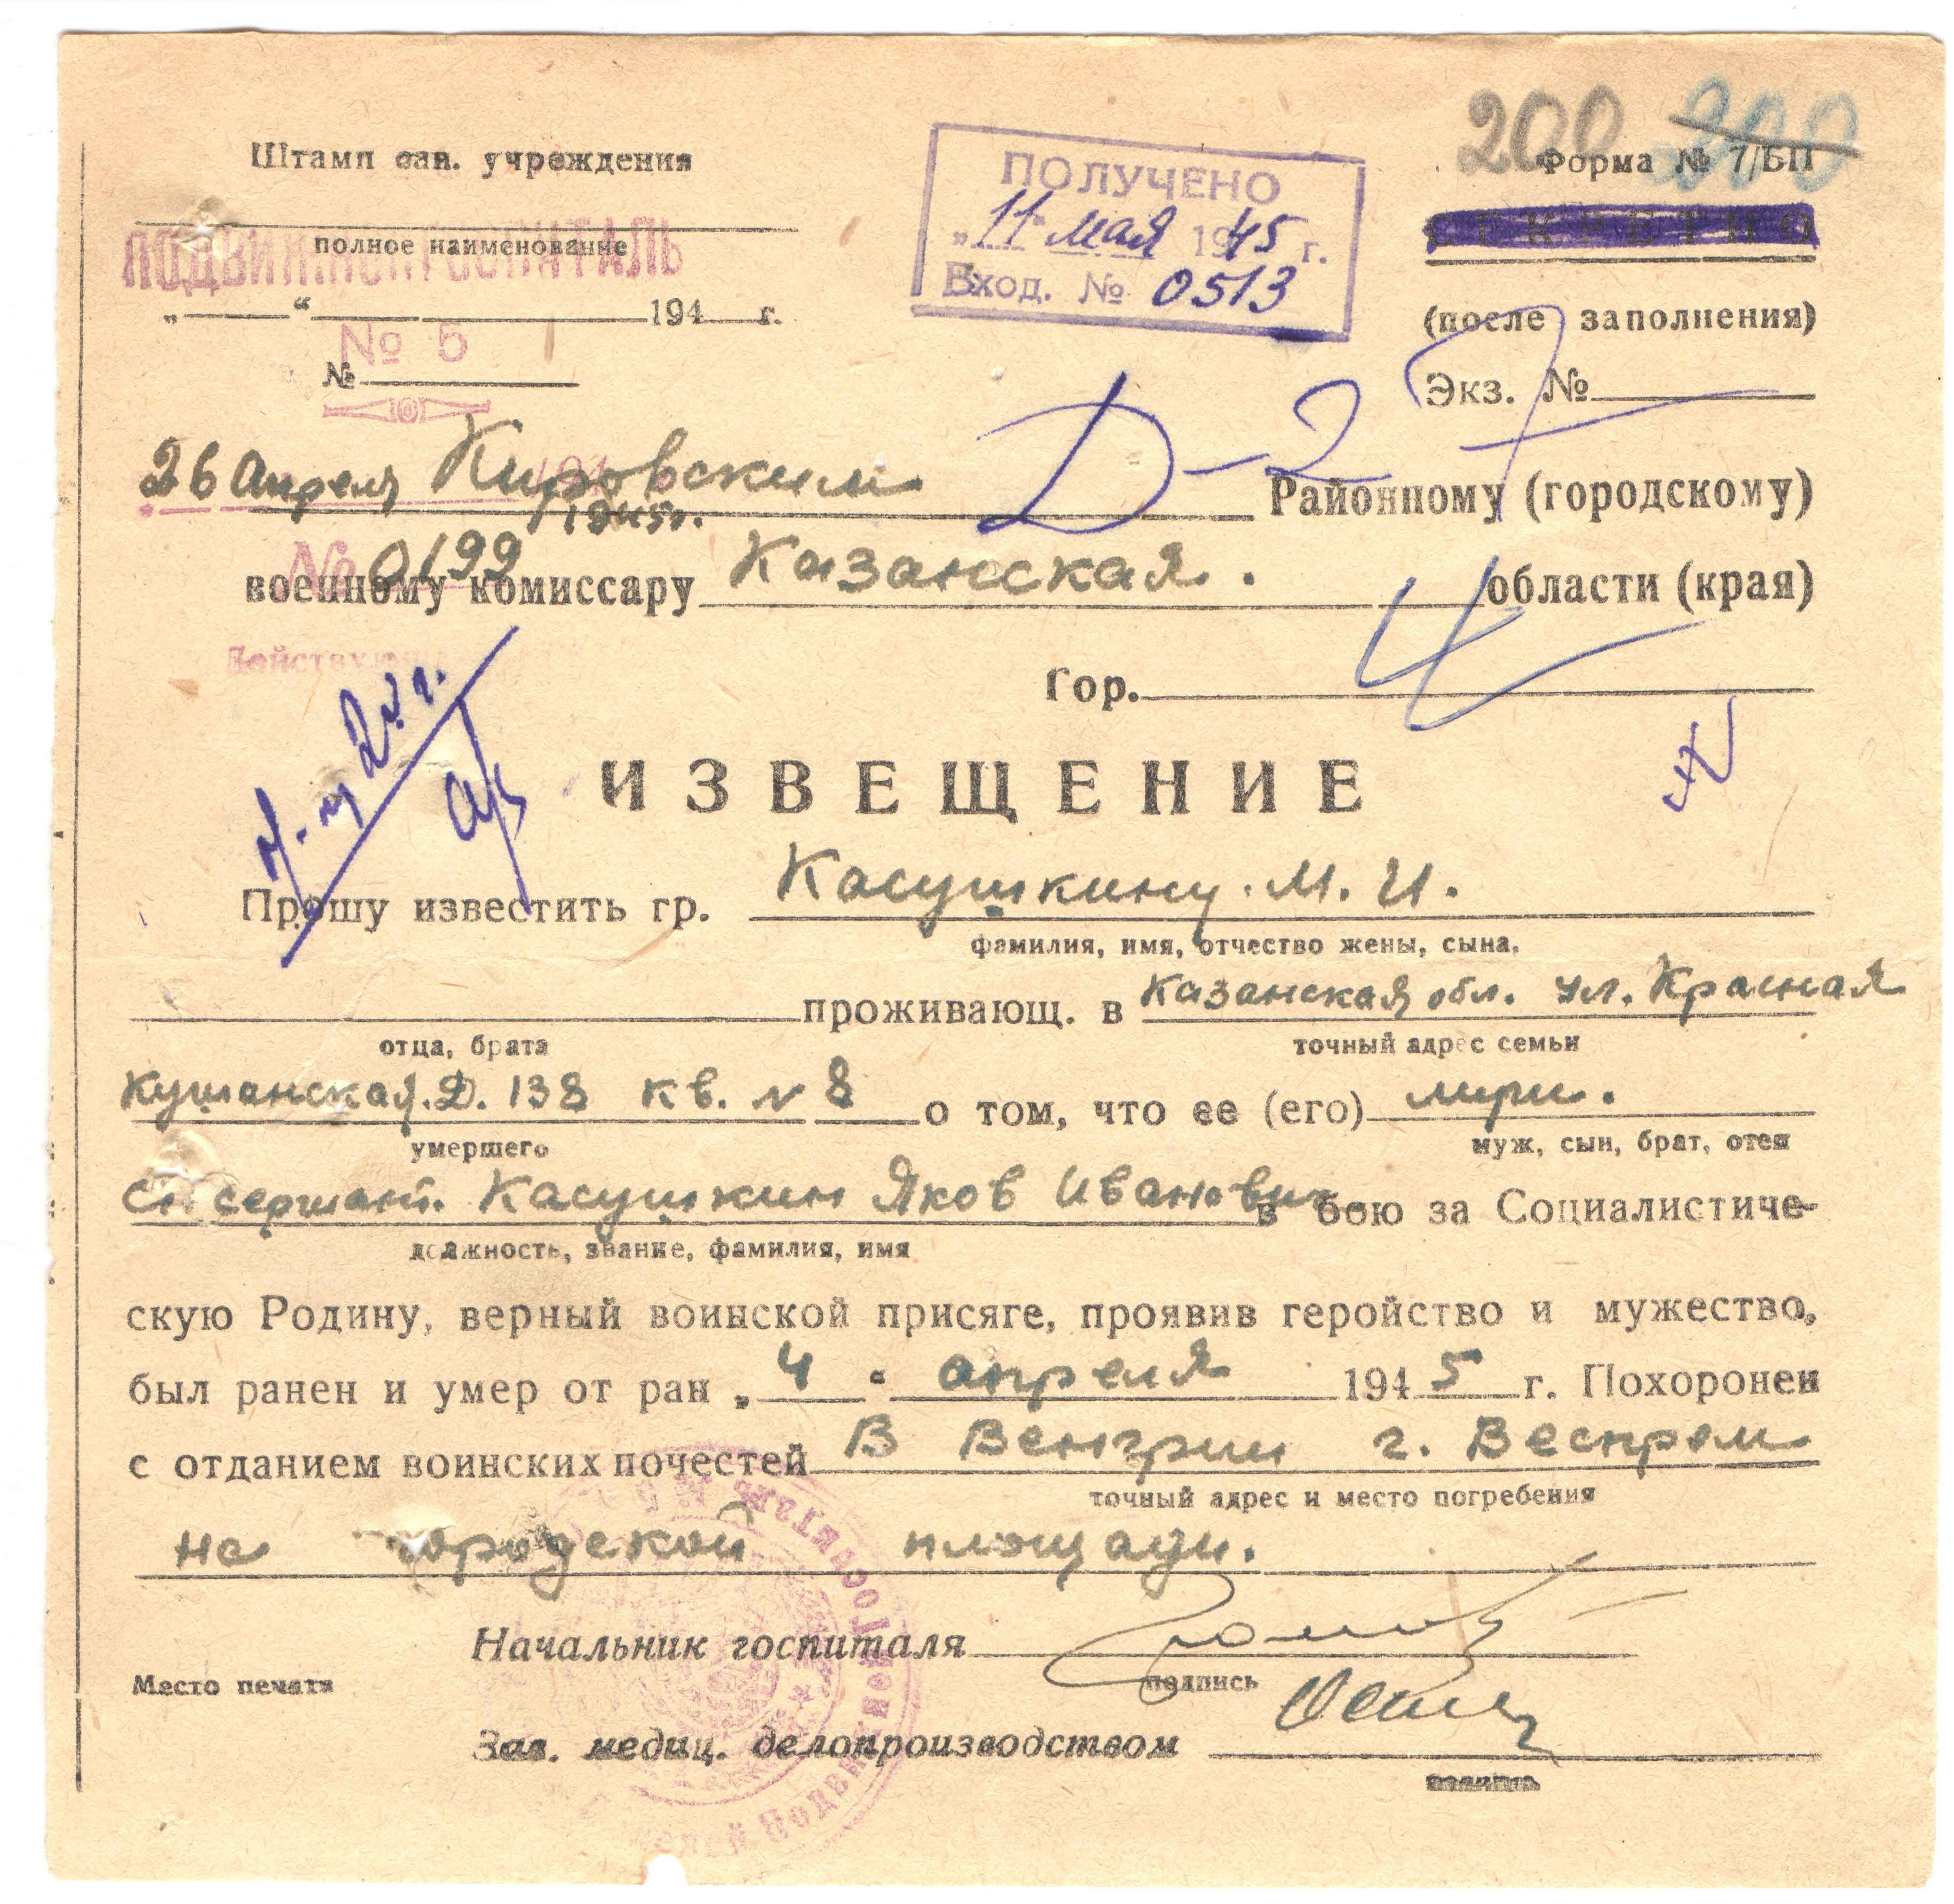 200 200
Штамп сан. учреждения
ПОЛУЧЕНО
Форма № 7/БП
"11" мая 1945 г.
СЕКРЕТНО
полное наименование
ПОДВИЖНОЙ ГОСПИТАЛЬ
Вход. № 0513
„ “ 194 г.
(после заполнения)
№ 5
№
Экз. №
Д-2
26 апреля Кировским Районному (городскому)
1945г.
№ 0199
военному комиссару Казанская. области (края)
Действую
Гор.
ИЗВЕЩЕНИЕ
Прошу известить гр. Касушкину. М. И.
фамилия, имя, отчество жены, сына,
проживающ. в Казанская обл. ул. Красная
отца, брата точный адрес семьи
Кушанская. Д. 138 кв. № 8 о том, что ее (его)
умершего муж, сын, брат, отец
ст. сержант. Касушкин Яков Иванович в бою за Социалистиче-
должность, звание, фамилия, имя
скую Родину, верный воинской присяге, проявив геройство и мужество,
был ранен и умер от ран „4“ апреля 1945 г. Похоронен
с отданием воинских почестей В Венгрии г. Веспрем
точный адрес и место погребения
на городской площади.
Начальник госпиталя
Место печати подпись
Зав. медиц. делопроизводством
подпись